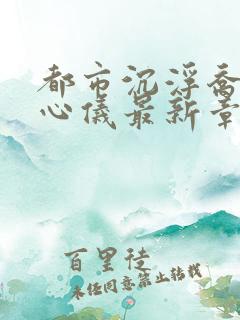 都市沉浮乔
心仪最新章
百里徒
未经同意禁止转载